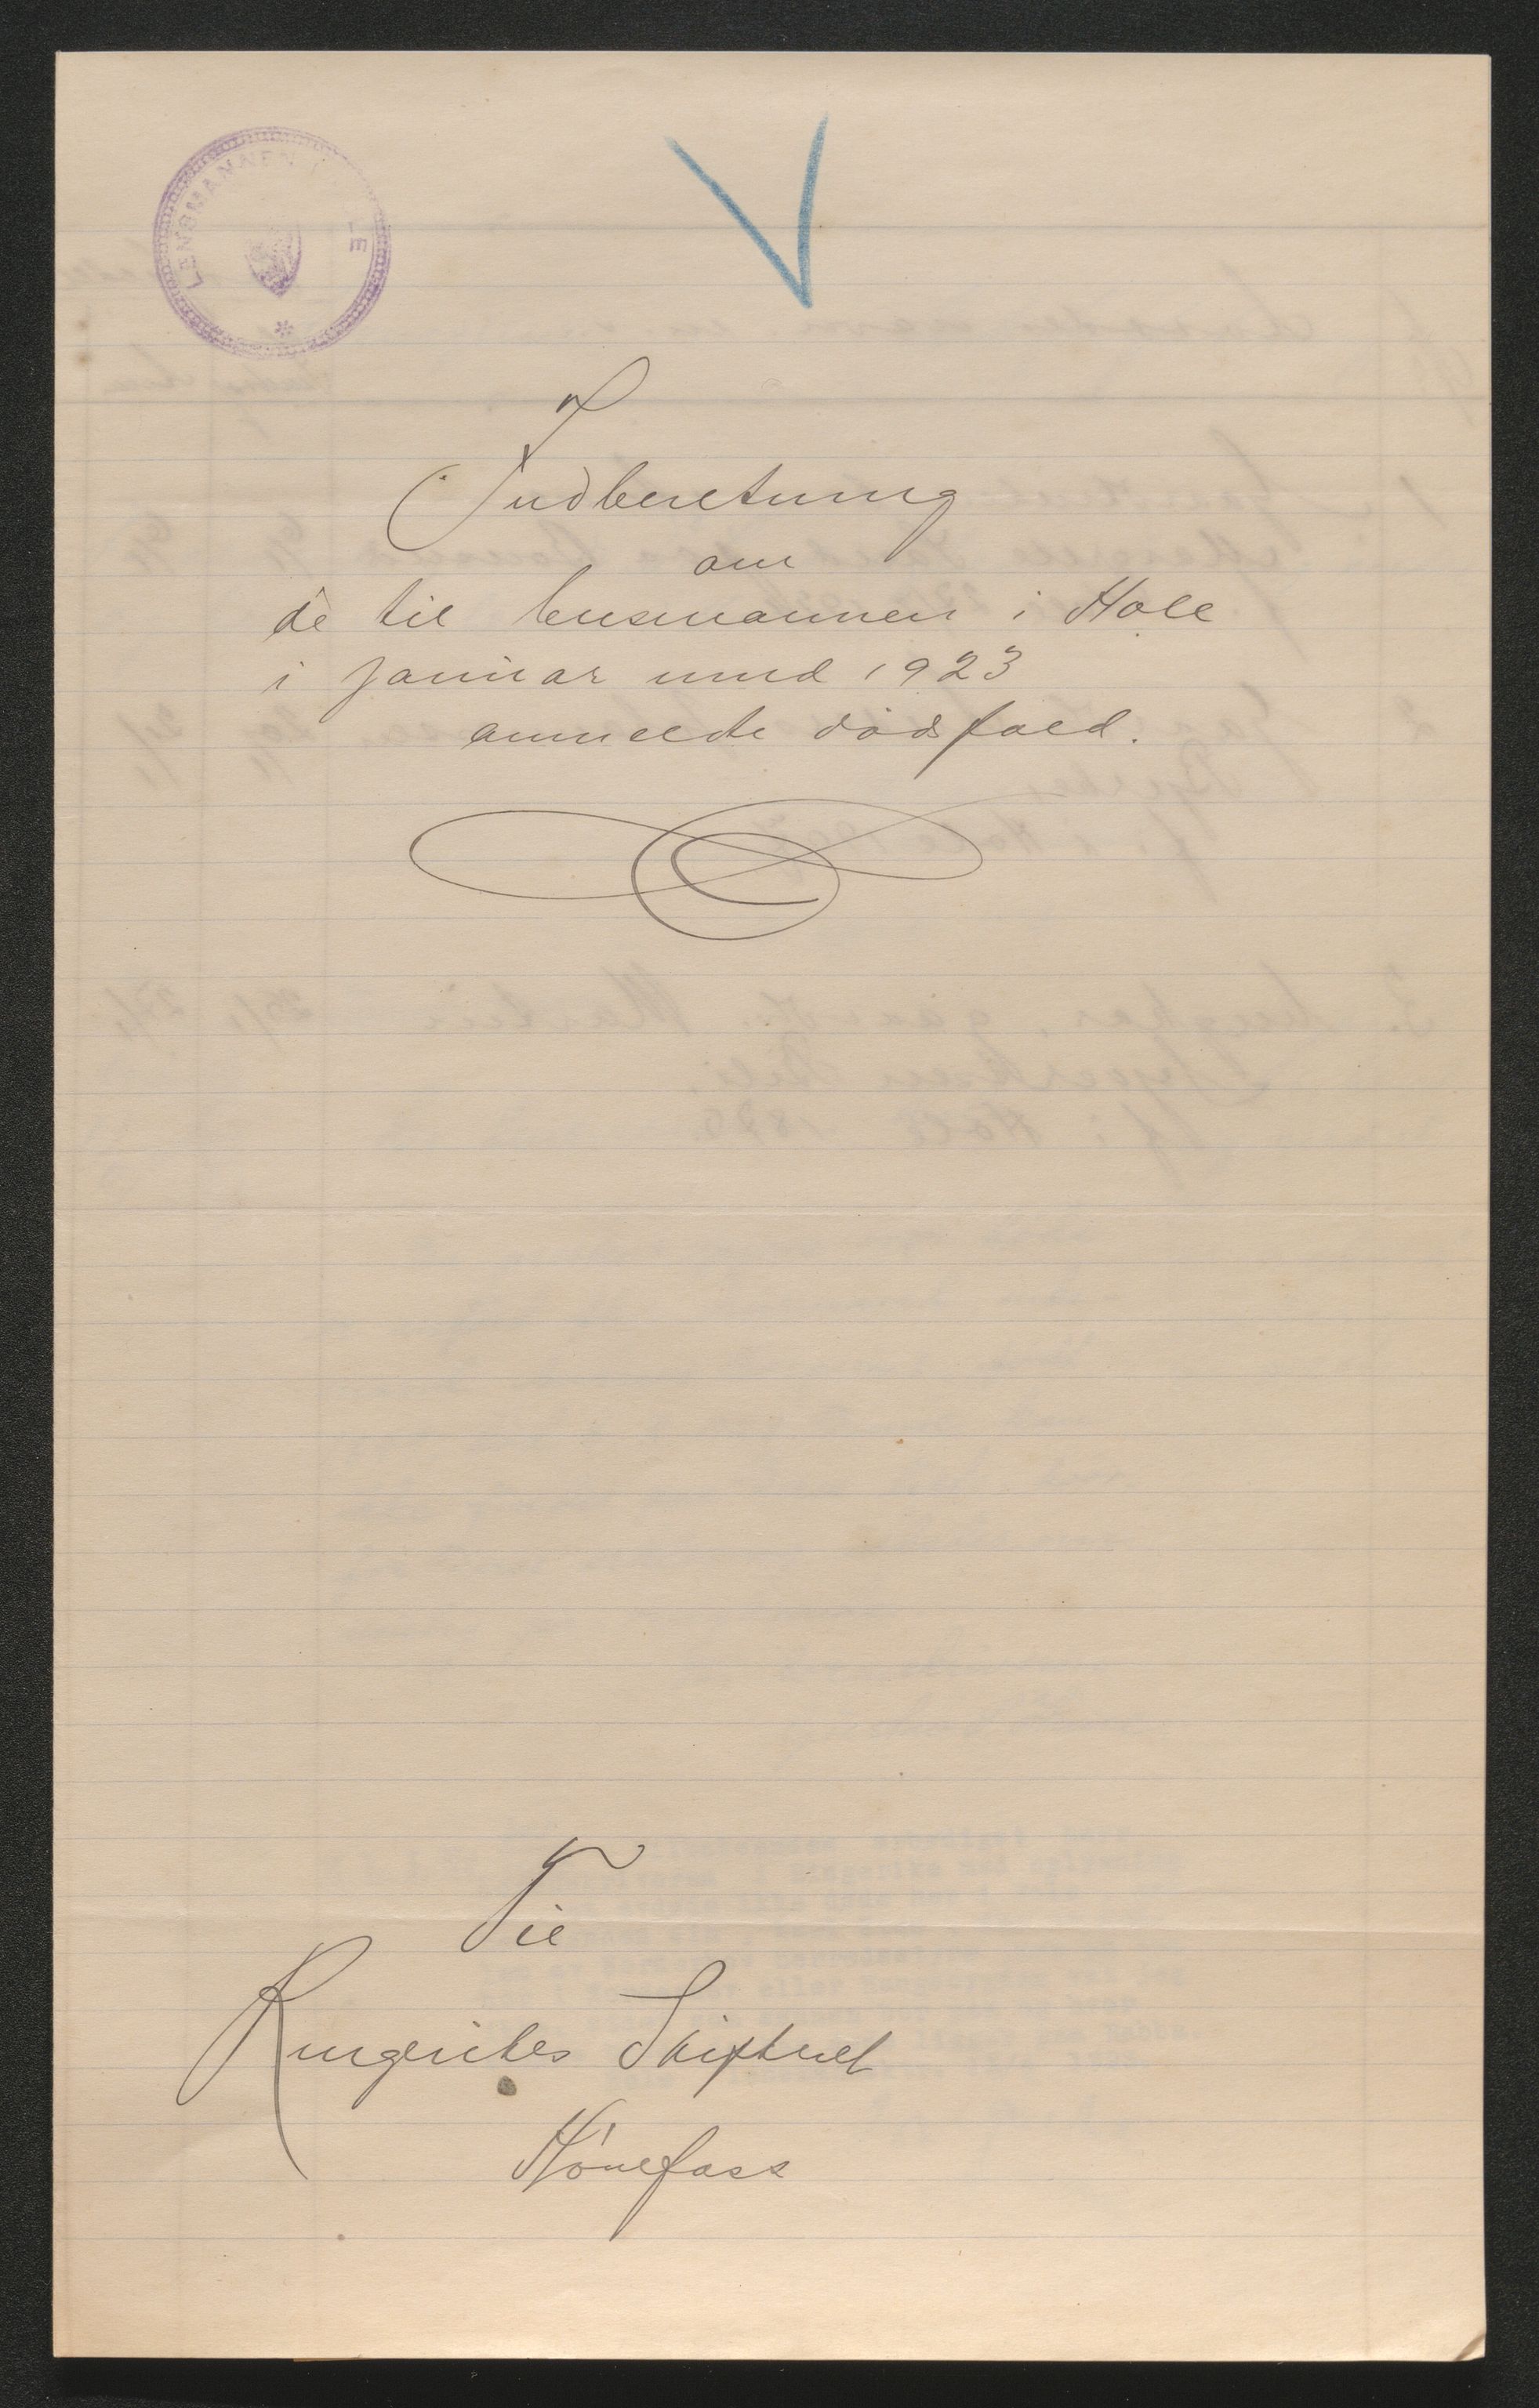 LENSMANNEN I HOLE
Indberetning
om
de til lensmannen i Hole
i januar mnd 1923
anmeldte dødsfald.
Til
Ringerikes Skifteret
Hönefoss